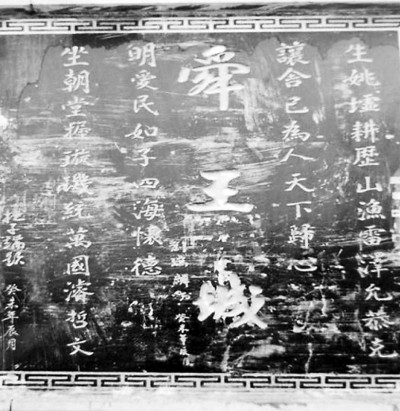 生姚墟耕歷山漁雷澤允恭克
讓舍己為人天下歸心
舜王城
明愛民如子四海懷德
坐朝堂握璇璣統萬國濬哲文
癸未年辰月